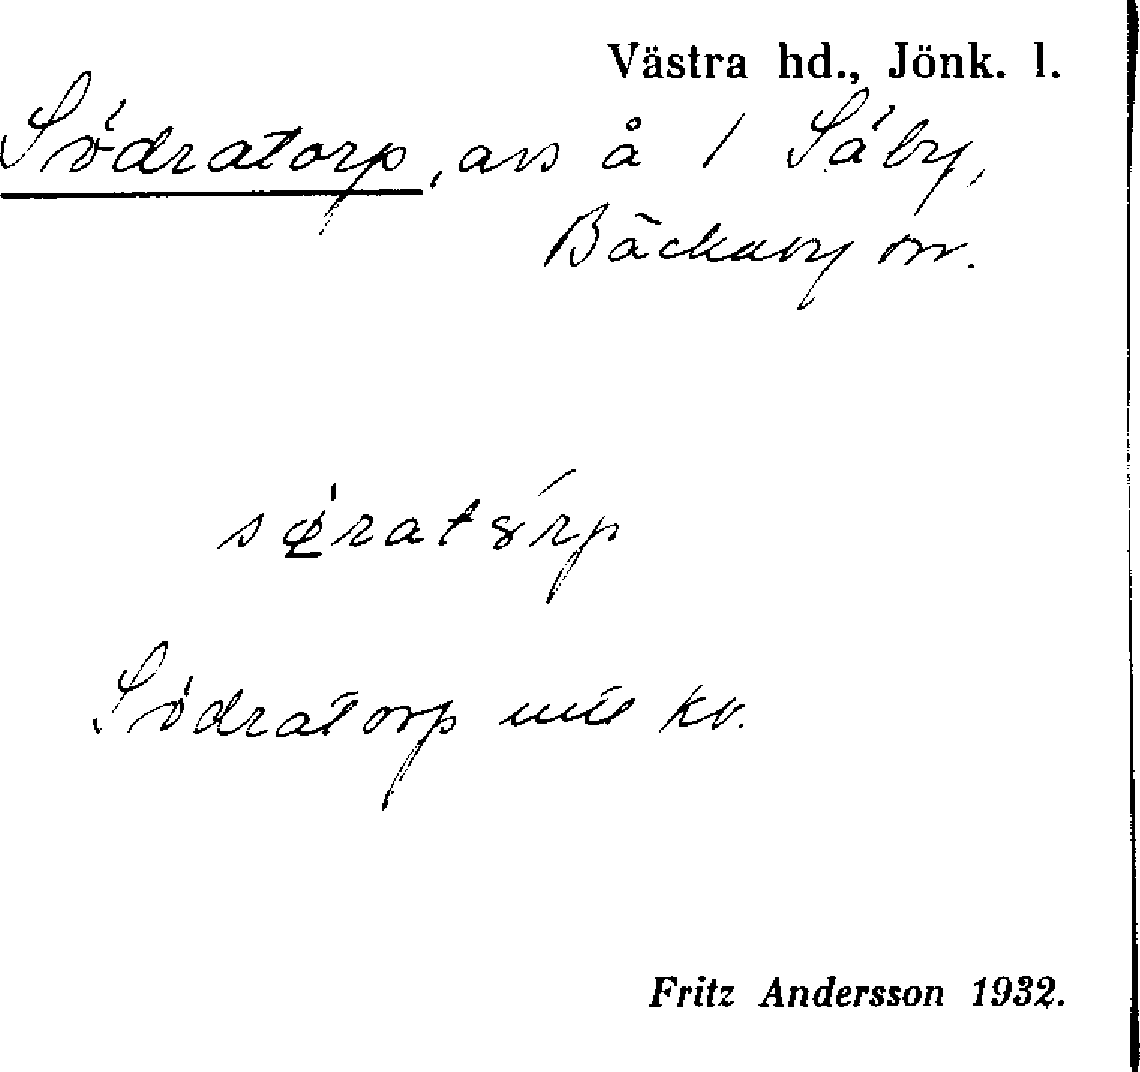 Västra hd., Jönk. l.
Södratorp, avs å 1 Säby,
Bäckaby sn.
sø̱ratȣrp
Södratorp kv.
Fritz Andersson 1932.